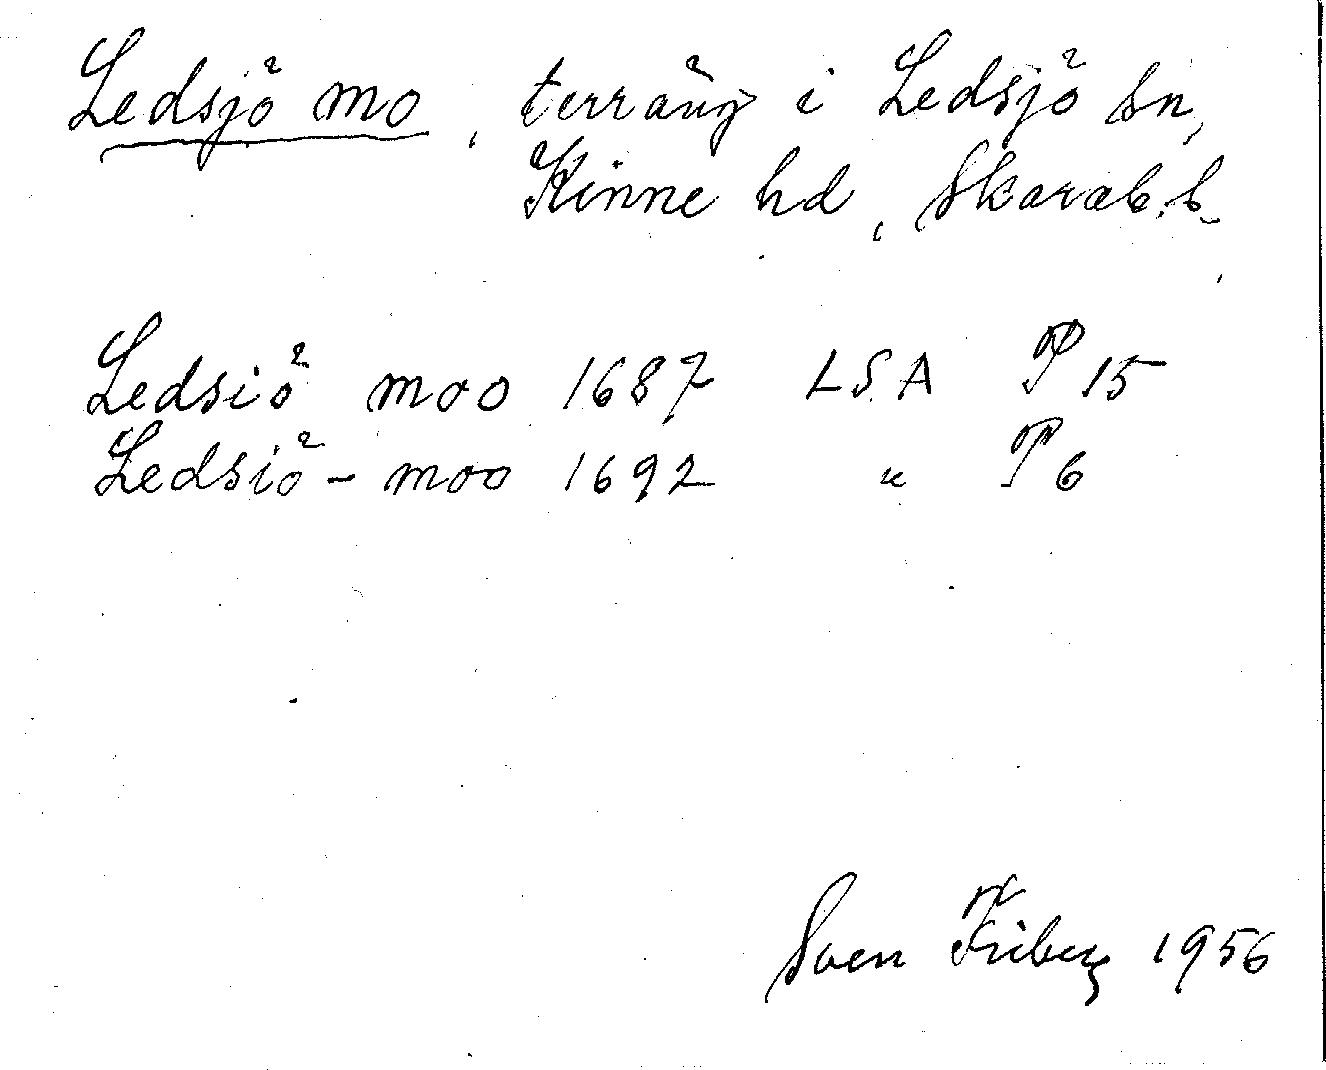 Ledsjö mo, terräng i Ledsjö sn,
Kinne hd, Skarab. l.
Ledsiö moo 1687 LSA P 15
Ledsiö - moo 1692 " P 6
Sven Friberg 1956